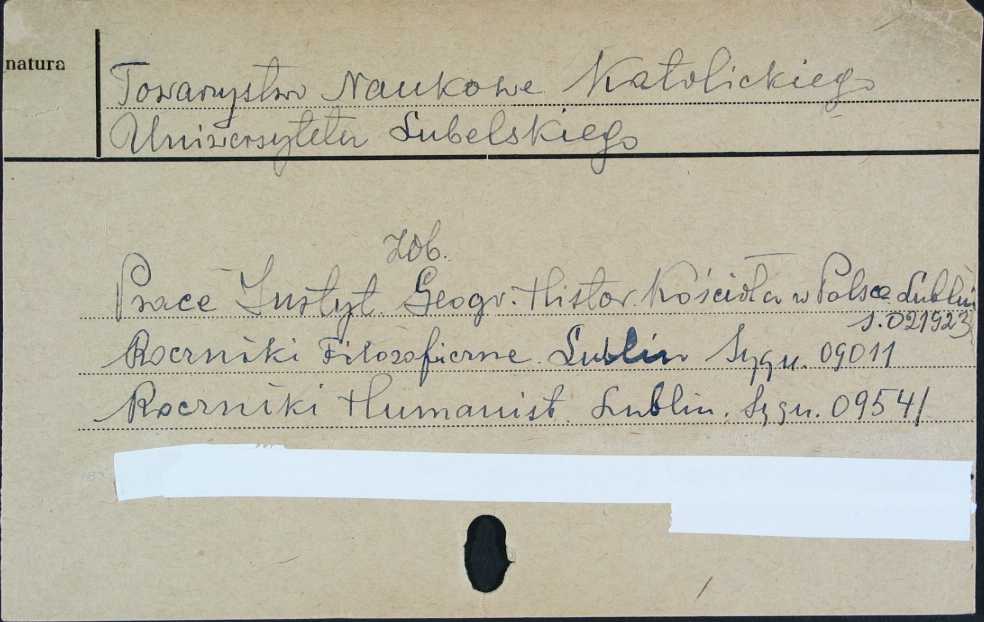 natura
Towarzystwo Naukowe Katolickiego
Uniwersytetu Lubelskiego
Zob.
Prace Instyt. Geogr. Histor. Kościoła w Polsce Lublin
s. 021923
Roczniki Filozoficzne. Lublin Sygn. 09011
Roczniki Humanist. Lublin. Sygn. 09541